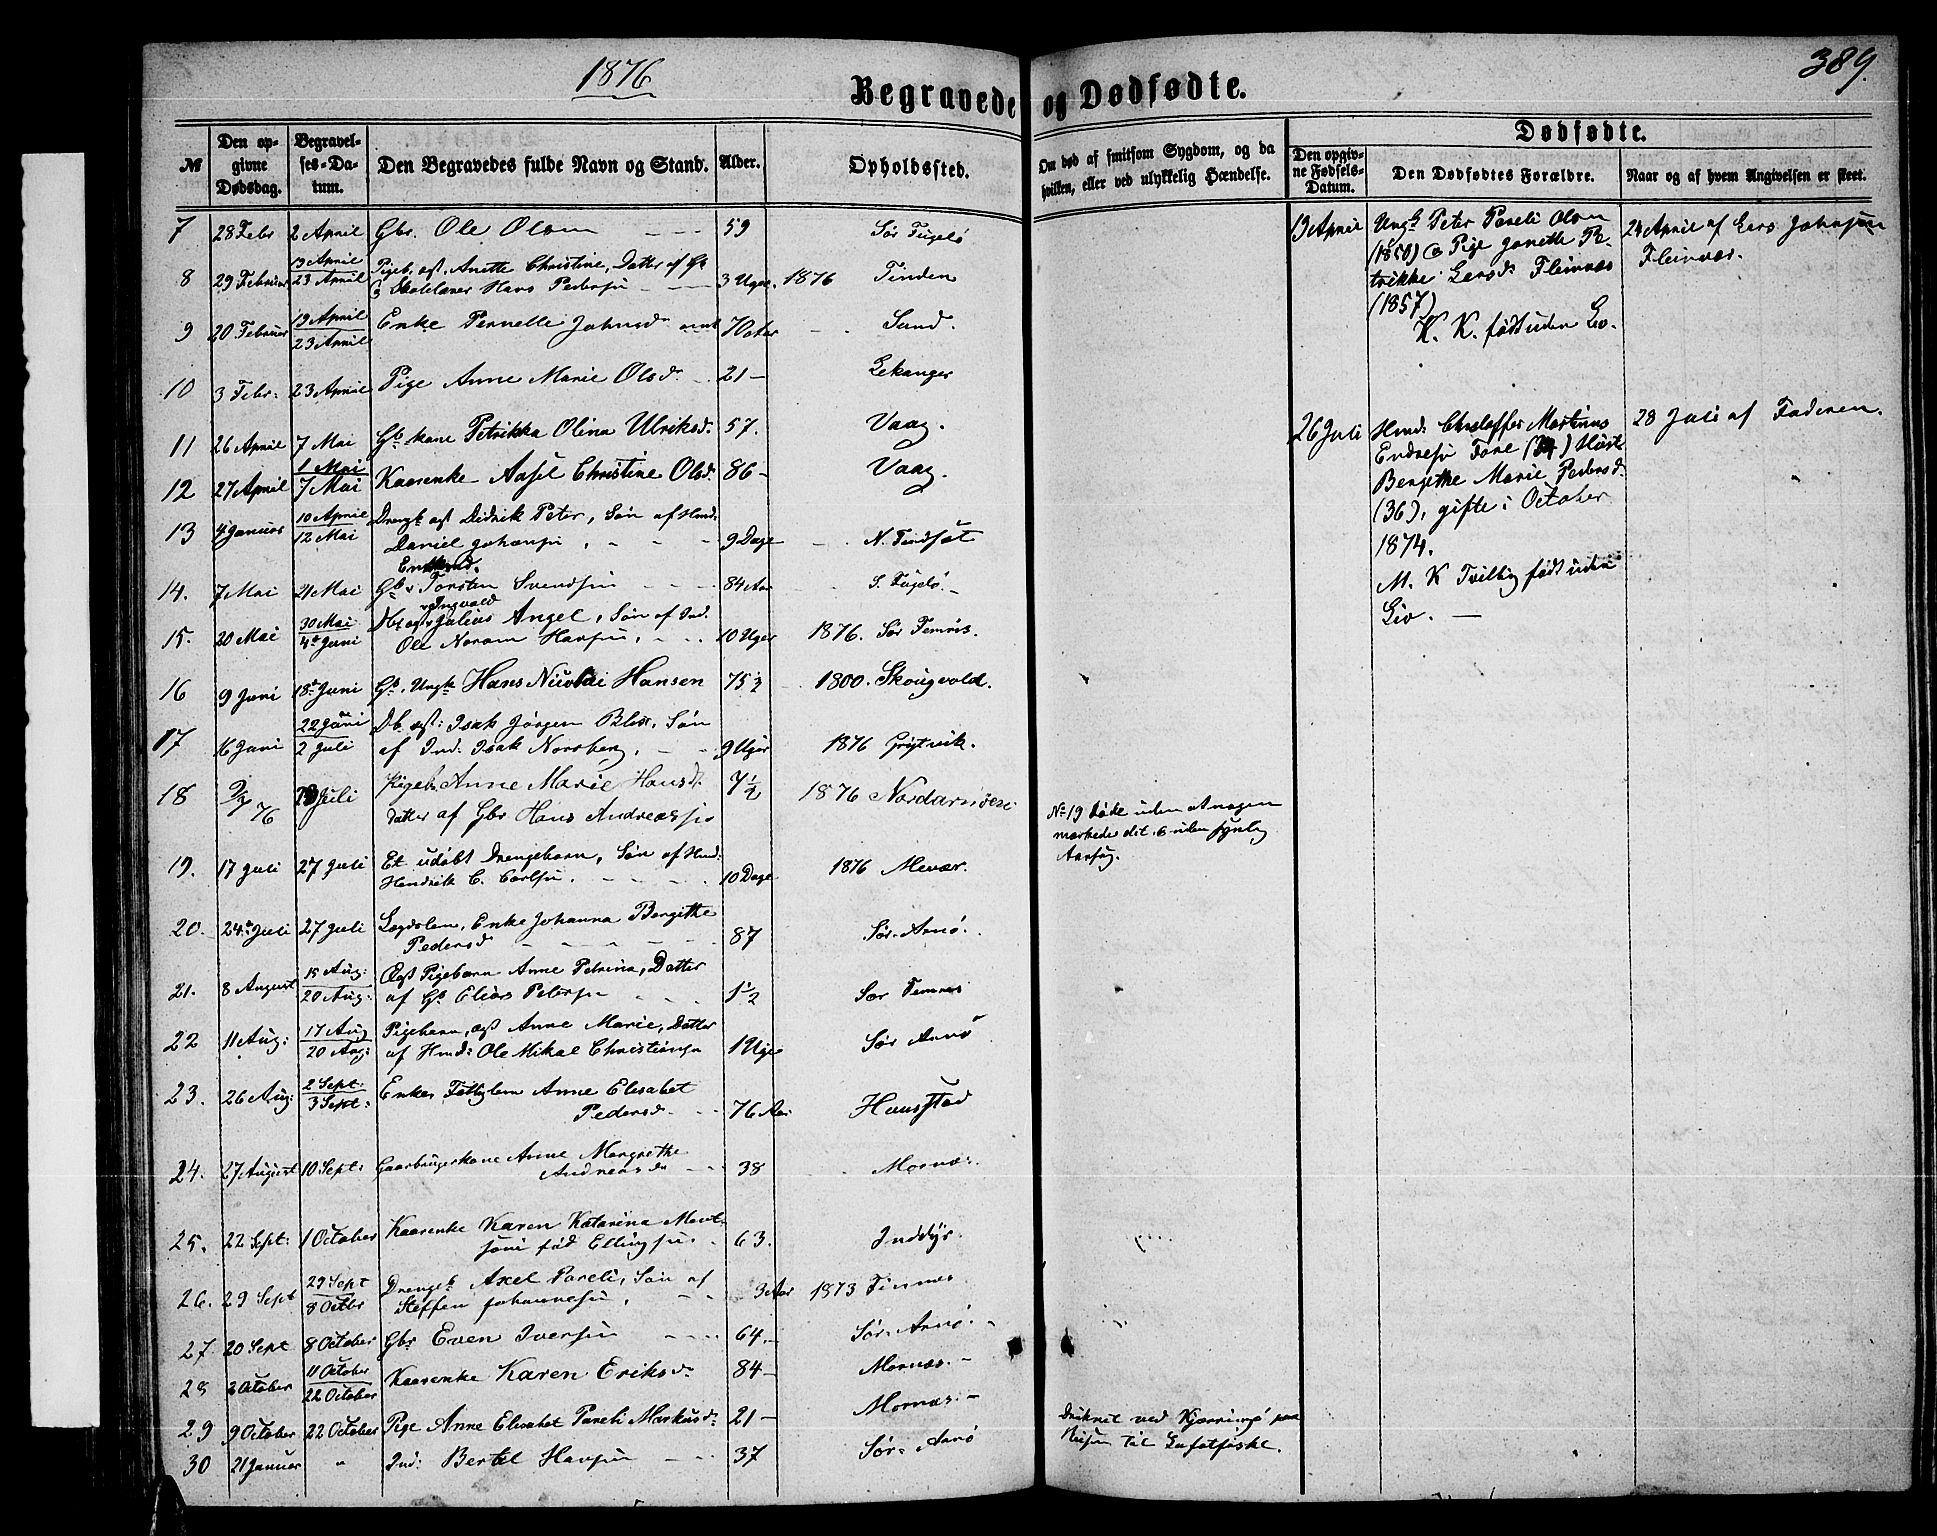 1876
389.
Begravede og Dødfødte.
№
Den opgivne Dødsdag.
Begravelses-Datum.
Den Begravedes fulde Navn og Stand.
Alder.
Opholdssted.
Om død af smitsom Sygdom, og da
hvilken, eller ved ulykkelig Hændelse.
Dødfødte.
Den opgivne Fødsels-Datum.
Den Dødfødtes Forældre.
Naar og af hvem Angivelsen er skeet.
7 28 Febr 2 April Gbr. Ole Olsen 59 Sør Fugelø
8 29 Februar 19 April 23 April Pigeb. ægt. Anette Christine, Datter af Gb
Skolelærer Hans Pedersen 3 Uger. 1876 Tinden
9 20 Februar 19 April 23 April Enke Pernelle Johnsd. 70 Aar Sund.
10 3 Febr: 23 April Pige Anne Marie Olsd. 21 - Lekanger
11 26 April 7 Mai Gb. kone Petrikka Olina Ulriksd. 57. Vaag.
12 27 April 1 Mai 7 Mai Kaarenke Aasel Christine Olsd. 86 - Vaag.
13 4 Januar 10 April 12 Mai Drengb ægt Didrik Peter, Søn af Hmd:
Daniel Johansen 9 Dage N. Finnset
14. 7 Mai 21 Mai Enkemd. Gb. Torsten Svendsen 84 Aar S. Fugelø. -
15. 20 Mai 30 Mai 4de Juni Ingvald
Julius Angel, Søn af Ind.
Ole Norum Hansen, 10 Uger 1876. Sør Femris.
16 9 Juni 18de Juni Gb. Ungk Hans Nicolai Hansen 75 1/2 1800. Skougvold.
17 16 Juni 22 Juni 2 Juli Db. ægt: Isak Jørgen Blix, Søn
af Ind: Isak Norsberg, 9 Uger 1876 Grytvik.
18 9/7 76 Juli Pigeb. Anne Marie Hansd.
Datter af Gbr Hans Andreassen 7 1/2 1876 Nordarnøen
No 19 døde uden at nogen
mærkede det & uden synlig
Aarsag.
19. 17 Juli 27 Juli Et udøbt Drengebarn, Søn af Hmd:
Hendrik C. Carlsen. 10 Dage 1876 Mevær.
20. 24de Juli 27 Juli Lægdslem, Enke Johanna Bergithe
Pedersd 87 Sør-Arnø.
21. 8 August 15 Aug: 20 Aug: Ægt Pigebarn Anne Petrina, Datter
af Gb Elias Petersen 1 1/2 Sør Femnes
22 11 Aug: 17 Aug 20 Aug: Pigebarn, ægt Anne Marie, Datter
af Hmd: Ole Mikal Christiansen 1 Uge Sør Arnø
23. 26 Aug: 2 Sept. 3 Sept: Enke Fattiglem Anne Elisabet
Pedersd. 76 Aar Hausstad
24. 27 August 10 Sept: Gaarbrugerkone Anne Margrethe
Andreasd 38 Mornæs.
25. 22 Sept: 1 October Kaarenke Karen Katarina Mort-
sen fød Ellingsen. 63. Inddyr.
26. 29 Sept 29 Sept 8 Octbr Drengeb. Axel Pareli, Søn af
Steffen Johannesen, 3 Aar 1873 Finnæs
27. 20 Sept 8 October Gbr Even Iversen 64. - Sør-Arnø. -
28 2 October 11 October 22 October Kaarenke Karen Eriksd. 84 - Mornæs. -
29 9 October 22 October Pige Anne Elisabet Pareli Markusd: 21 - Mornæs. -
30 21 Januar " Ind: Bertel Hansen 37 Sør-Arnø
Druknet ved Kjærringø paa
Reisen til Lofotfiske.
19 April Ungk Peter Pareli Olsen
(1850) & Pige Janette Pe-
trikke Larsd: Fleinvær
(1857)
K. K. født uden Liv.
24 April af Lars Johnsen
Fleinvær.
26 Juli Hmd: Christoffer Martinus
Endresen Fore (34) Hustr
Bergithe Marie Pedersd.
(36), gifte i October
1874.
M. K Tvilling født uden
Liv. -
28 Juli af Faderen.